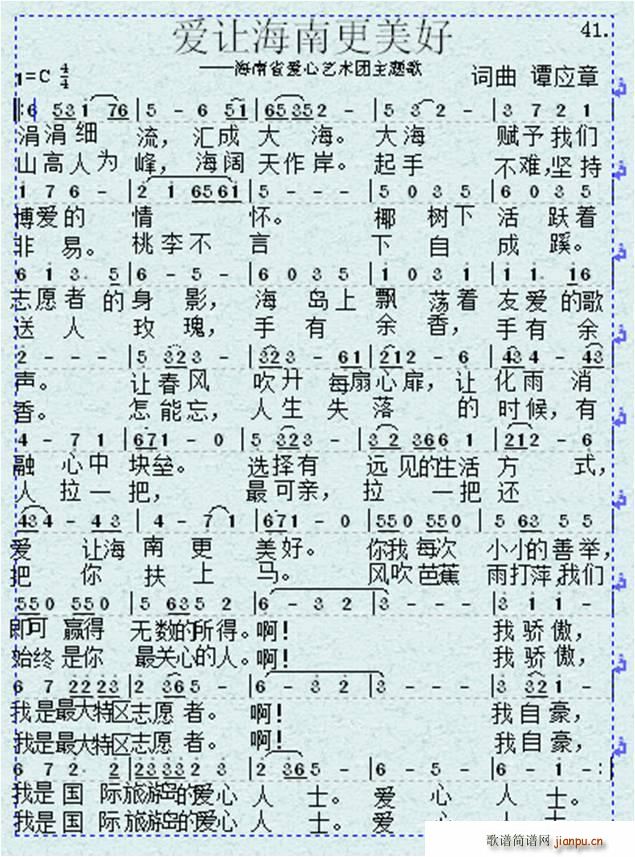 爱让海南更美好
41.
——海南省爱心艺术团主题歌
1=C 4/4
词曲 谭应章
‖:6 531 76 | 5 - 6 51 | 65352 - | 5 3 2 - | 3 7 2 1
涓涓细 流，汇成 大 海。大海 赋予我们
山高人为 峰，海阔 天作岸。起手 不难，坚持
1 7 6 - | 2 1 6561 | 5 - - - | 5 0 3 5 | 6 0 3 5
博爱的 情 怀。 椰 树下 活 跃着
非 易。 桃李不 言 下 自 成 蹊。
6 1 3. 5 | 6 - 5 - | 6 0 3 5 | 1 0 3 1 | 1 1. 16
志愿者 的身 影，海 岛上 飘 荡着 友爱的歌
送 人 玫 瑰，手有 余 香，手有 余
2 - - - | 5 323 - | 323 - 61 | 212 - 6 | 434 - 43
声。 让春风 吹开 每扇心扉，让 化雨 消
香。 怎能忘，人生 失 落 的 时候，有
4 - 7 1 | 671 - 0 | 5 323 - | 3 2 366 1 | 212 - 6
融 心中 块垒。 选择有 远 见的生活 方 式，
人 拉一把， 最可亲，拉 一把 还
434 - 43 | 4 - 7 1 | 671 - 0 | 550 550 | 5 63 5 5
爱 让海 南 更 美好。 你我每次 小小的善举，
把 你 扶 上 马。 风吹芭蕉 雨打萍，我们
550 550 | 5 635 2 | 6 - 3 2 | 3 - - - | 3 1 1 -
即可 赢得 无数的所得。啊！ 我 骄傲，
始终是你 最关心的人。啊！ 我 骄傲，
6 7 2223 | 2 365 - | 6 - 3 2 | 3 - - - | 3 321 -
我是最大特区志愿 者。 啊！ 我自豪，
我是最大特区志愿 者。 啊！ 我自豪，
6 7 2. 2 | 23332 3 | 2 365 - | 6 - 5 - | 6 - 1 - :‖
我是国 际旅游岛的爱心 人 士。爱 心 人 士。
我是国 际旅游岛的爱心 人 士。爱 心 人 士。
歌谱简谱网
jianpu.cn